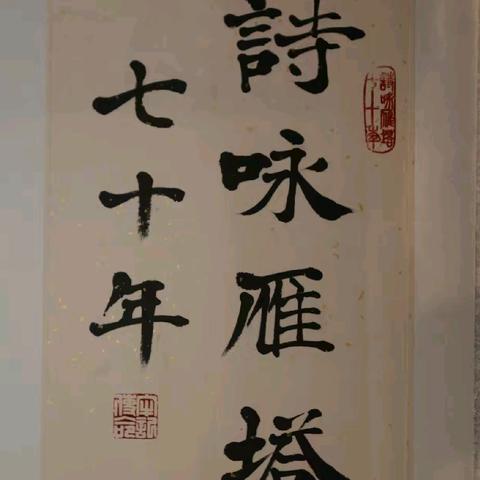 詩咏雁塔
七十年
詩咏雁塔
七十年